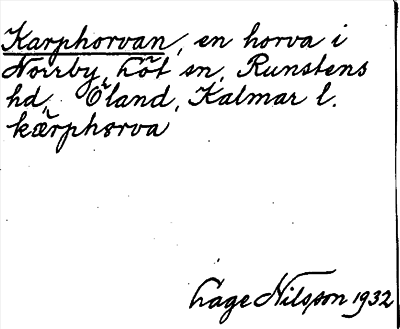 Karphorvan, en horva i
Norrby, Löt sn, Runstens
hd, Öland, Kalmar l.
kærphorva
Lage Nilsson 1932